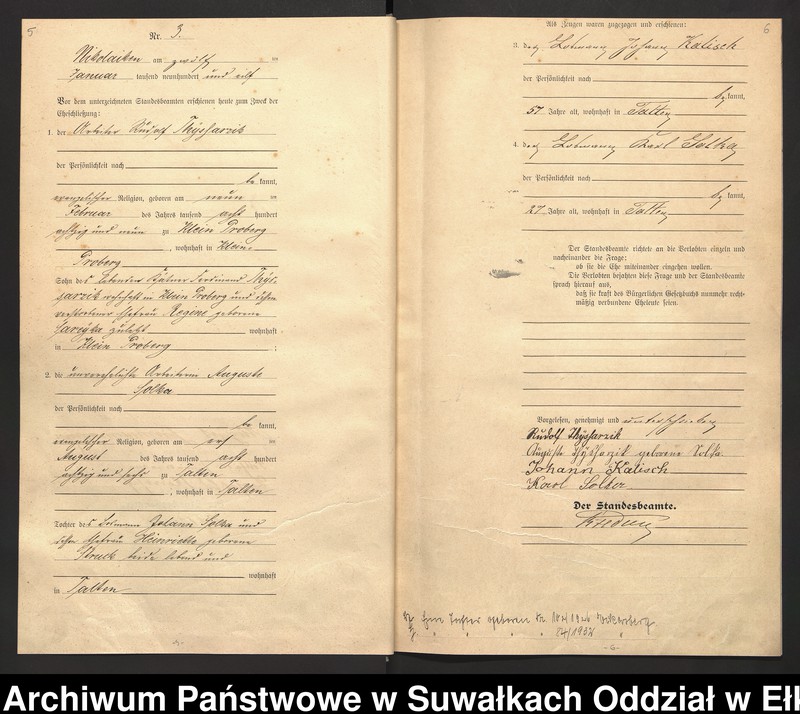 5
Nr. 3.
Nikolaiken am zwölf ten
Januar tausend neunhundert und elf
Vor dem unterzeichneten Standesbeamten erschienen heute zum Zweck der
Eheschließung:
1. der Arbeiter Rudolf Thyssarzik
der Persönlichkeit nach
be kannt,
evangelischer Religion, geboren am neun ten
Februar des Jahres tausend acht hundert
achtzig und neun zu Klein Proberg
, wohnhaft in Klein
Proberg
Sohn des Kätner Ferdinand Thys-
sarzik wohnhaft in Klein Proberg und
verstorbenen Ehefrau Regine geborene
zuletzt wohnhaft
in Klein Proberg ;
2. die unverehelichte Arbeiterin Auguste
Solka
der Persönlichkeit nach
be kannt,
evangelischer Religion, geboren am
August des Jahres tausend acht hundert
achtzig und sechs zu Talten
, wohnhaft in Talten
Tochter des Losmann Johann Solka und
Ehefrau Heinriette geborene
Struck beide lebend und
wohnhaft
in Talten
6
Als Zeugen waren zugezogen und erschienen:
3. der Losmann Johann Kalisch
der Persönlichkeit nach
be kannt,
57 Jahre alt, wohnhaft in Talten
4. der Losmann Karl Solka
der Persönlichkeit nach
be kannt,
27 Jahre alt, wohnhaft in Talten
Der Standesbeamte richtete an die Verlobten einzeln und
nacheinander die Frage:
ob sie die Ehe miteinander eingehen wollen.
Die Verlobten bejahten diese Frage und der Standesbeamte
sprach hierauf aus,
daß sie kraft des Bürgerlichen Gesetzbuchs nunmehr recht-
mäßig verbundene Eheleute seien.
Vorgelesen, genehmigt und unterschrieben
Rudolf Thyssarzik
Auguste Thyssarzik geborene Solka
Johann Kalisch
Karl
Der Standesbeamte.
Eine Tochter geboren
Archiwum Państwowe w Suwałkach Oddział w Ełk